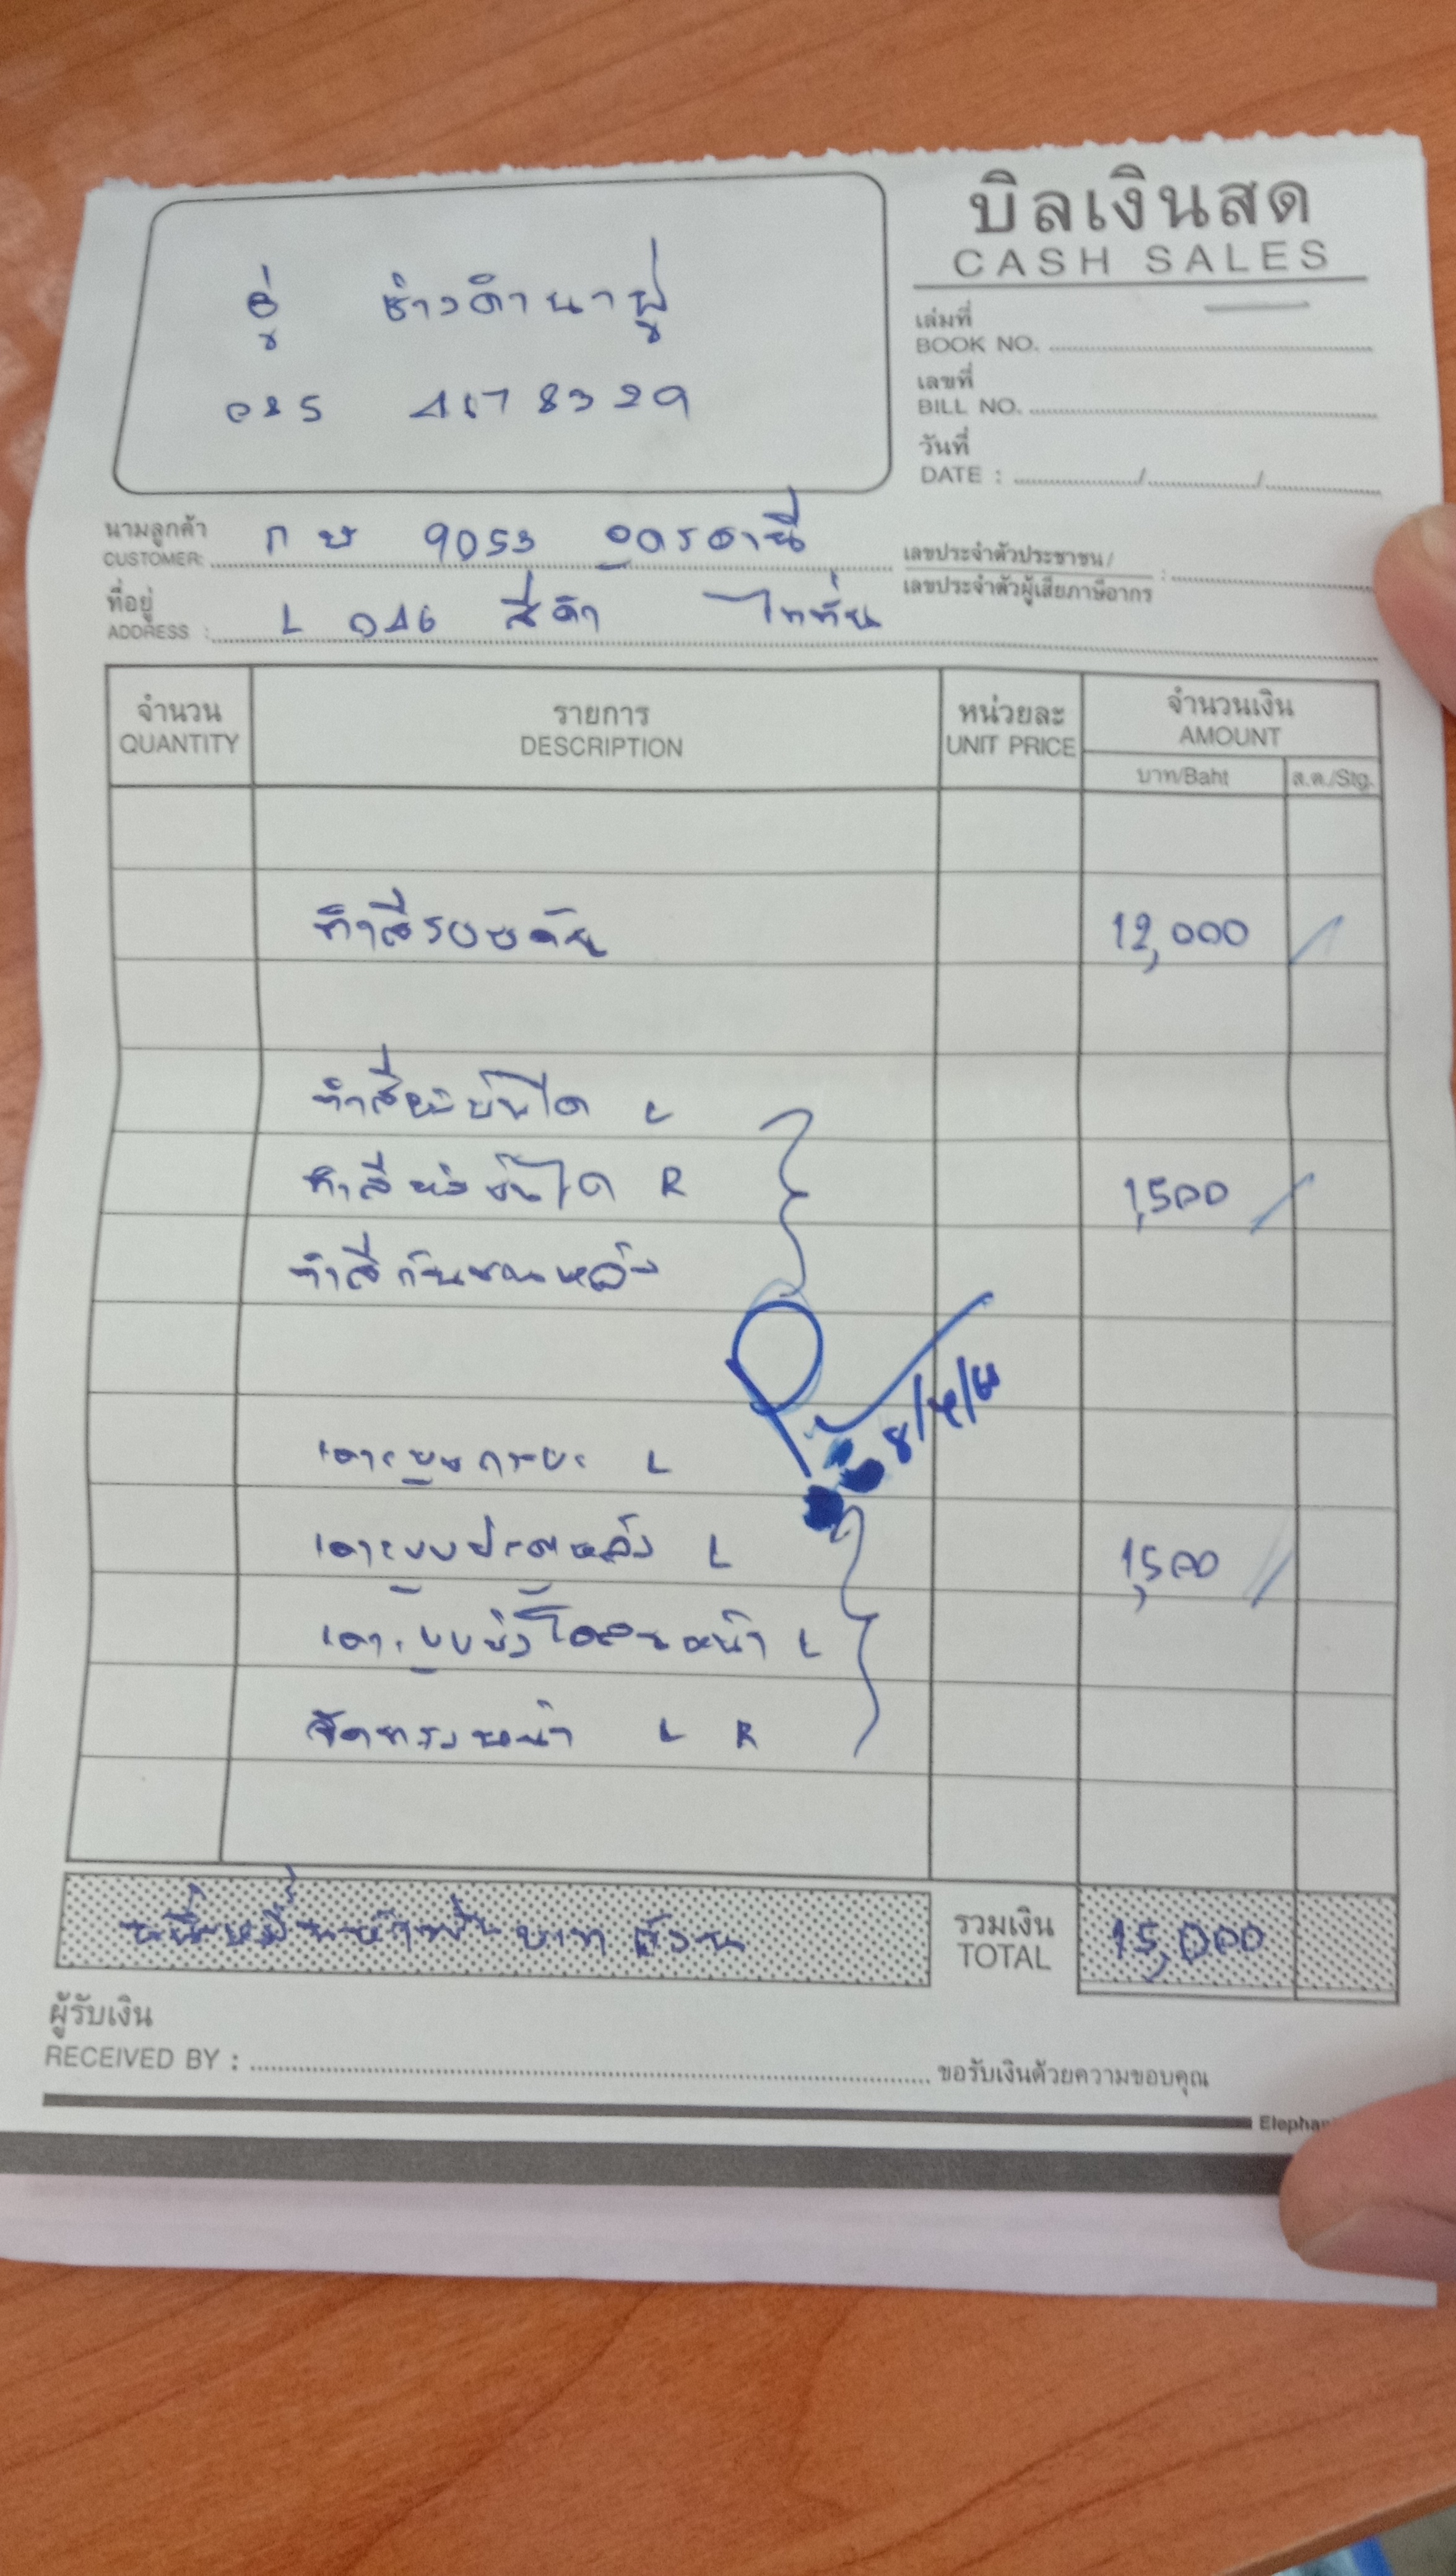 บิลเงินสด
CASH SALES
อู่ ช่างดำนาปู่
085 4678329
เล่มที่
BOOK NO.
เลขที่
BILL NO.
วันที่
DATE : / /
นามลูกค้า
CUSTOMER: กษ 9053 อุดรธานี
เลขประจำตัวประชาชน/
เลขประจำตัวผู้เสียภาษีอากร :
ที่อยู่
ADDRESS : L 046 สีดำ ไททั่น
จำนวน QUANTITY รายการ DESCRIPTION หน่วยละ UNIT PRICE จำนวนเงิน AMOUNT
บาท/Baht ส.ต./Stg.
ทำสีรอบคัน 12,000
ทำสี บันได L
ทำสี บันได R 1,500
ทำสีกันชนหลัง
8/4/
เคาะ กระบะ L
เคาะ หลัง L 1,500
เคาะ หน้า L
จัดทรงหน้า L R
หนึ่งหมื่นห้าพันบาทถ้วน
รวมเงิน
TOTAL 15,000
ผู้รับเงิน
RECEIVED BY : ขอรับเงินด้วยความขอบคุณ